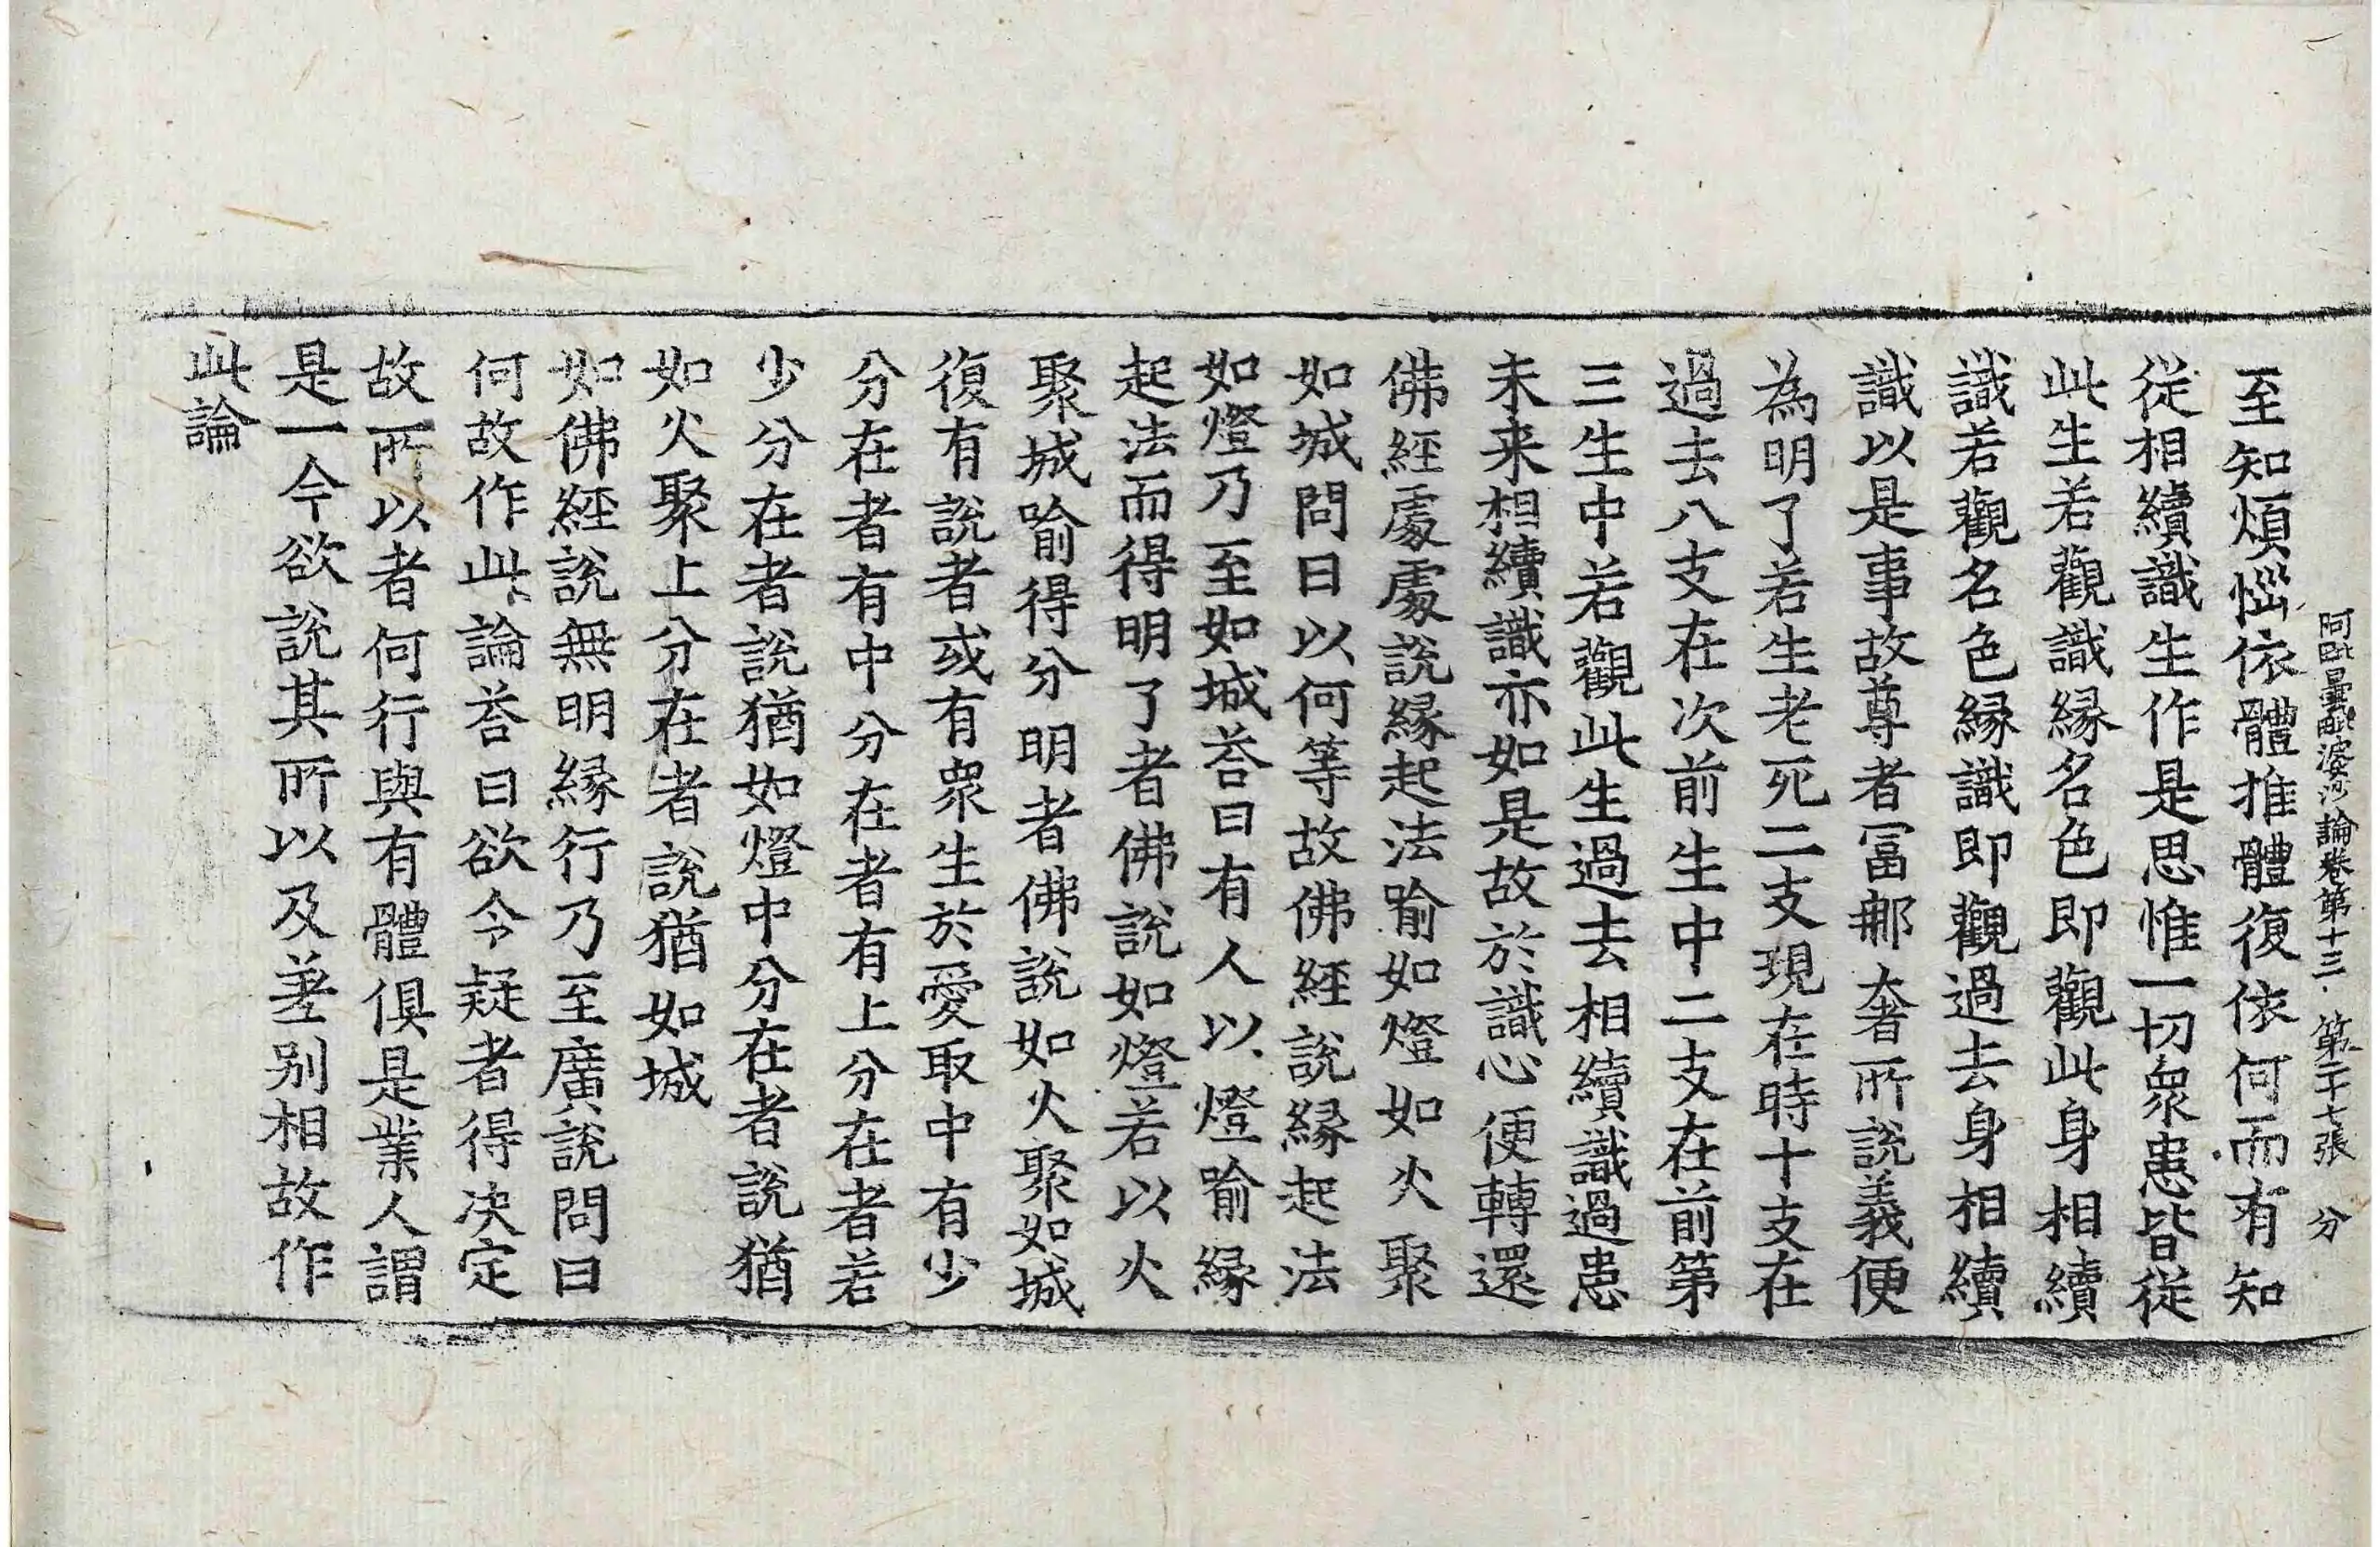 阿毗曇毗婆沙論卷第十三 第二十七張 分
至知煩惱依體推體復依何而有知
從相續識生作是思惟一切衆患皆從
此生若觀識緣名色即觀此身相續
識若觀名色緣識即觀過去身相續
識以是事故尊者富那奢所說義便
為明了若生老死二支現在時十支在
過去八支在次前生中二支在前第
三生中若觀此生過去相續識過患
未來相續識亦如是故於識心便轉還
佛經處處說緣起法喻如燈如火聚
如城問曰以何等故佛經說緣起法
如燈乃至如城荅曰有人以燈喻緣
起法而得明了者佛說如燈若以火
聚城喻得分明者佛說如火聚如城
復有說者或有衆生於愛取中有少
分在者有中分在者有上分在者若
少分在者說猶如燈中分在者說猶
如火聚上分在者說猶如城
如佛經說無明緣行乃至廣說問曰
何故作此論荅曰欲令疑者得決定
故所以者何行與有體俱是業人謂
是一今欲說其所以及差別相故作
此論